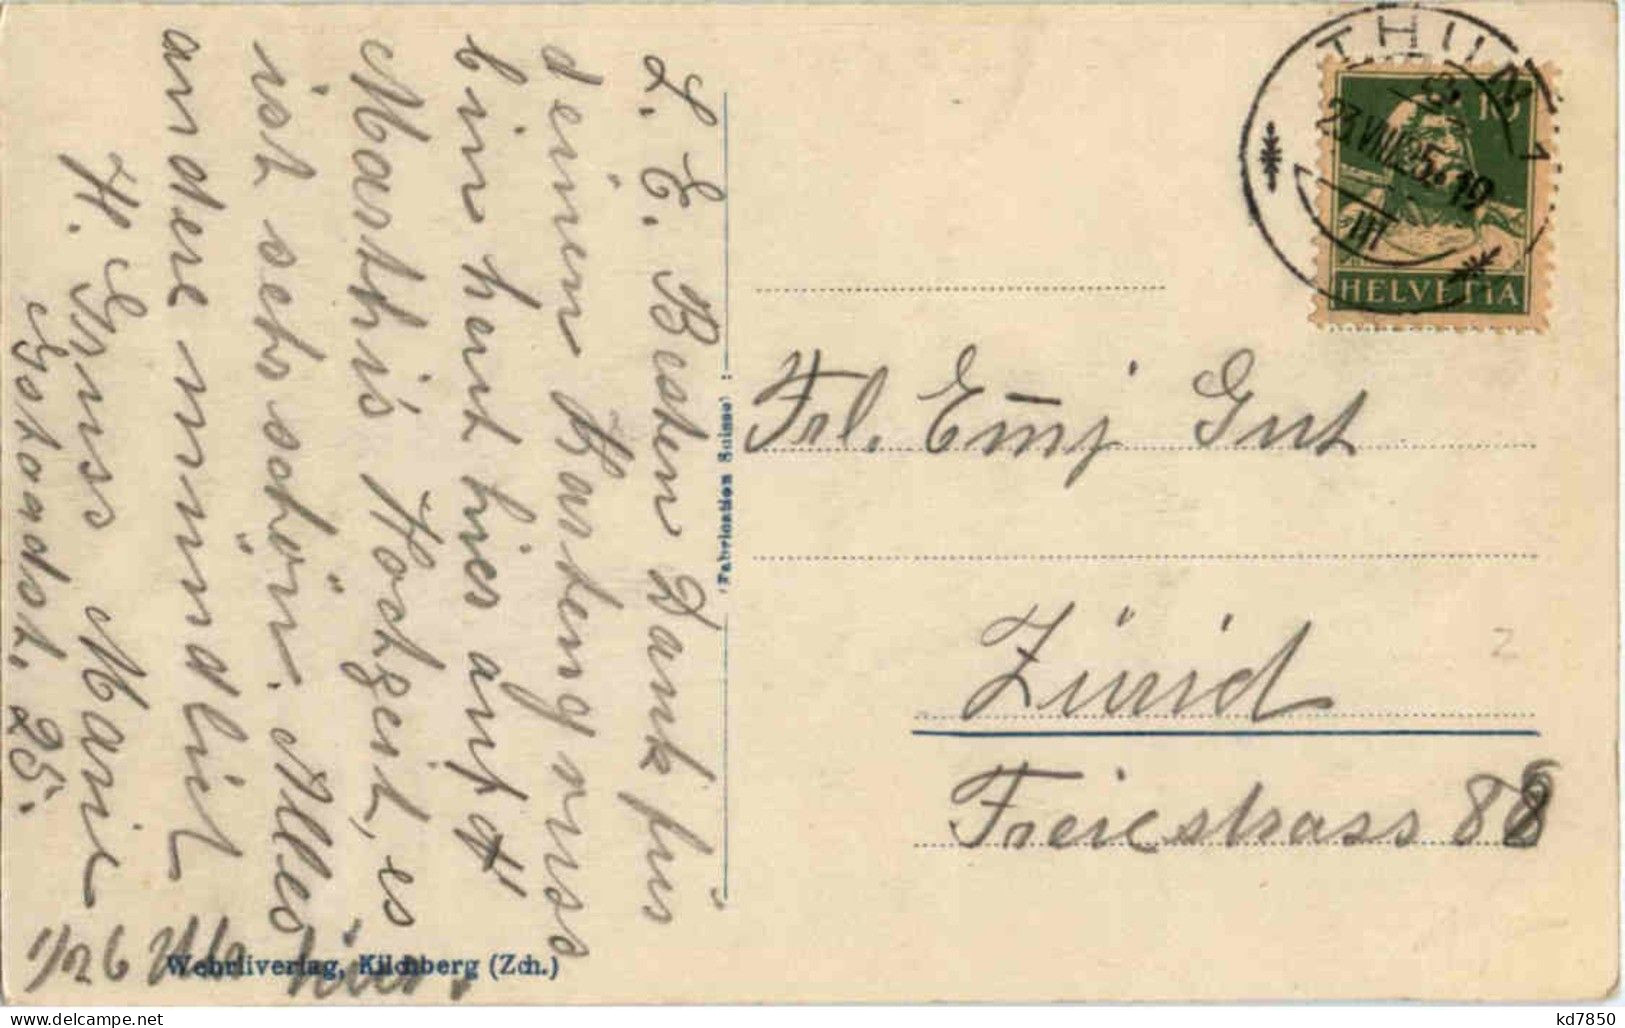 L. E. Besten Dank für
deinen Kartengruss
bin heut hier auf
Marthis Hochzeit, es
ist sehr schön. Alles
andere mündlich
H. Gruss Marie
Gstaadst. 25.
1/2 6 Uhr
THUN 1
23.VIII.25.-19
III
10
HELVETIA
Frl. Emmy Gut
Zürich
Freiestrass 88
Fabrication Suisse
Wehrliverlag, Kilchberg (Zch.)
kd7850